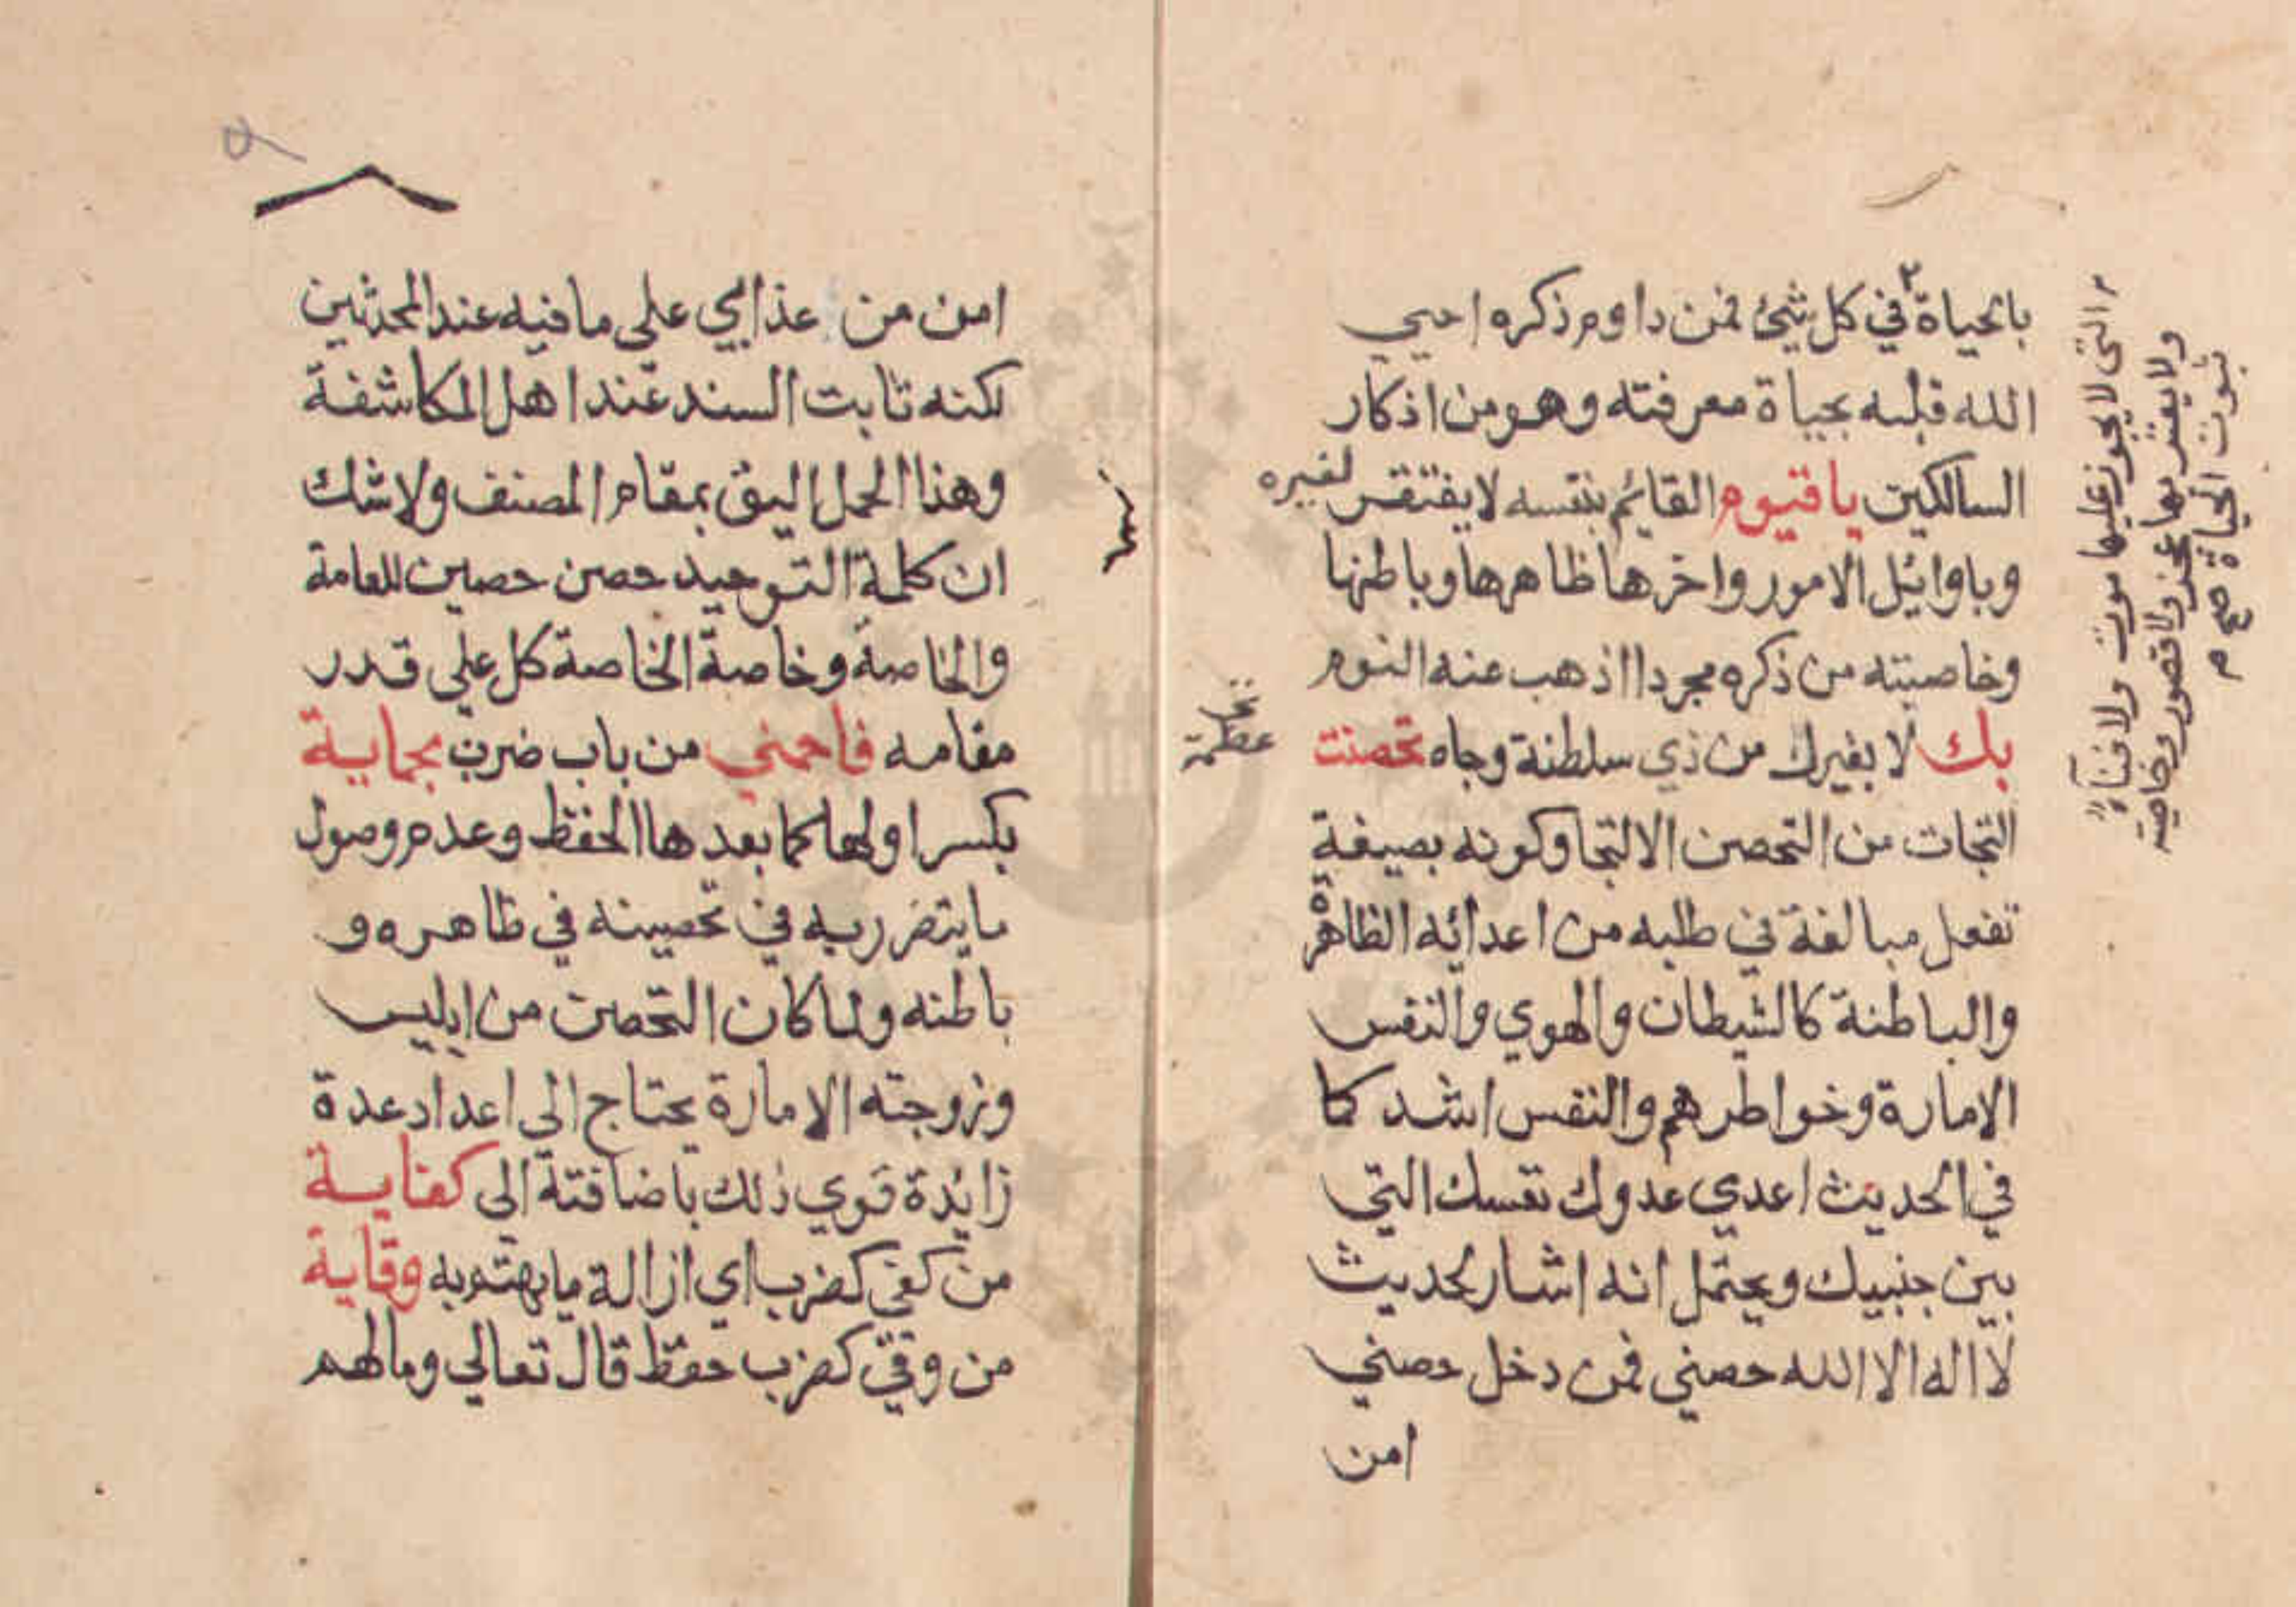 بالحياة٢ في كل شيئ فمن داوم ذكره احيي
الله قلبه بحياة معرفته وهو من اذكار
السالكين يا قيوم القائم بنفسه لا يفتقر لغيره
وباوائل الامور واخرها ظاهرها وباطنها
وخاصيته من ذكره مجردا اذهب عنه النوم
بك لا بغيرك من ذي سلطنة وجاه تحصنت
التجات من التحصن الالتجا وكونه بصيغة
تفعل مبالغة في طلبه من اعدائه الظاهرة
والباطنة كالشيطان والهوي والنفس
الامارة وخواطرهم والنفس اشد كما
في الحديث اعدي عدوك نفسك التي
بين جنبيك ويحتمل انه اشار لحديث
لا اله الا الله حصني فمن دخل حصني
امن
٢ التي لا يجوز عليها موت ولا فناء
ولا يعتريها عجز ولا قصور وخاصيته
ثبوت الحياة صح م
عظمة
امن من عذابي علي ما فيه عند المحدثين
لكنه ثابت السند عند اهل المكاشفة
وهذا الحمل اليق بمقام المصنف ولاشك
ان كلمة التوحيد حصن حصين للعامة
والخاصة وخاصة الخاصة كل علي قدر
مقامه فاحمني من باب ضرب بحماية
بكسر اولها كما بعدها الحفظ وعدم وصول
ما يتضرر به في تحصينه في ظاهره و
باطنه ولما كان التحصن من ابليس
وزوجته الامارة يحتاج الي اعداد عدة
زايدة قوي ذلك باضافته الي كفاية
من كفي كضرب اي ازالة ما يهتم به وقاية
من وقي كضرب حفظ قال تعالي وما لهم